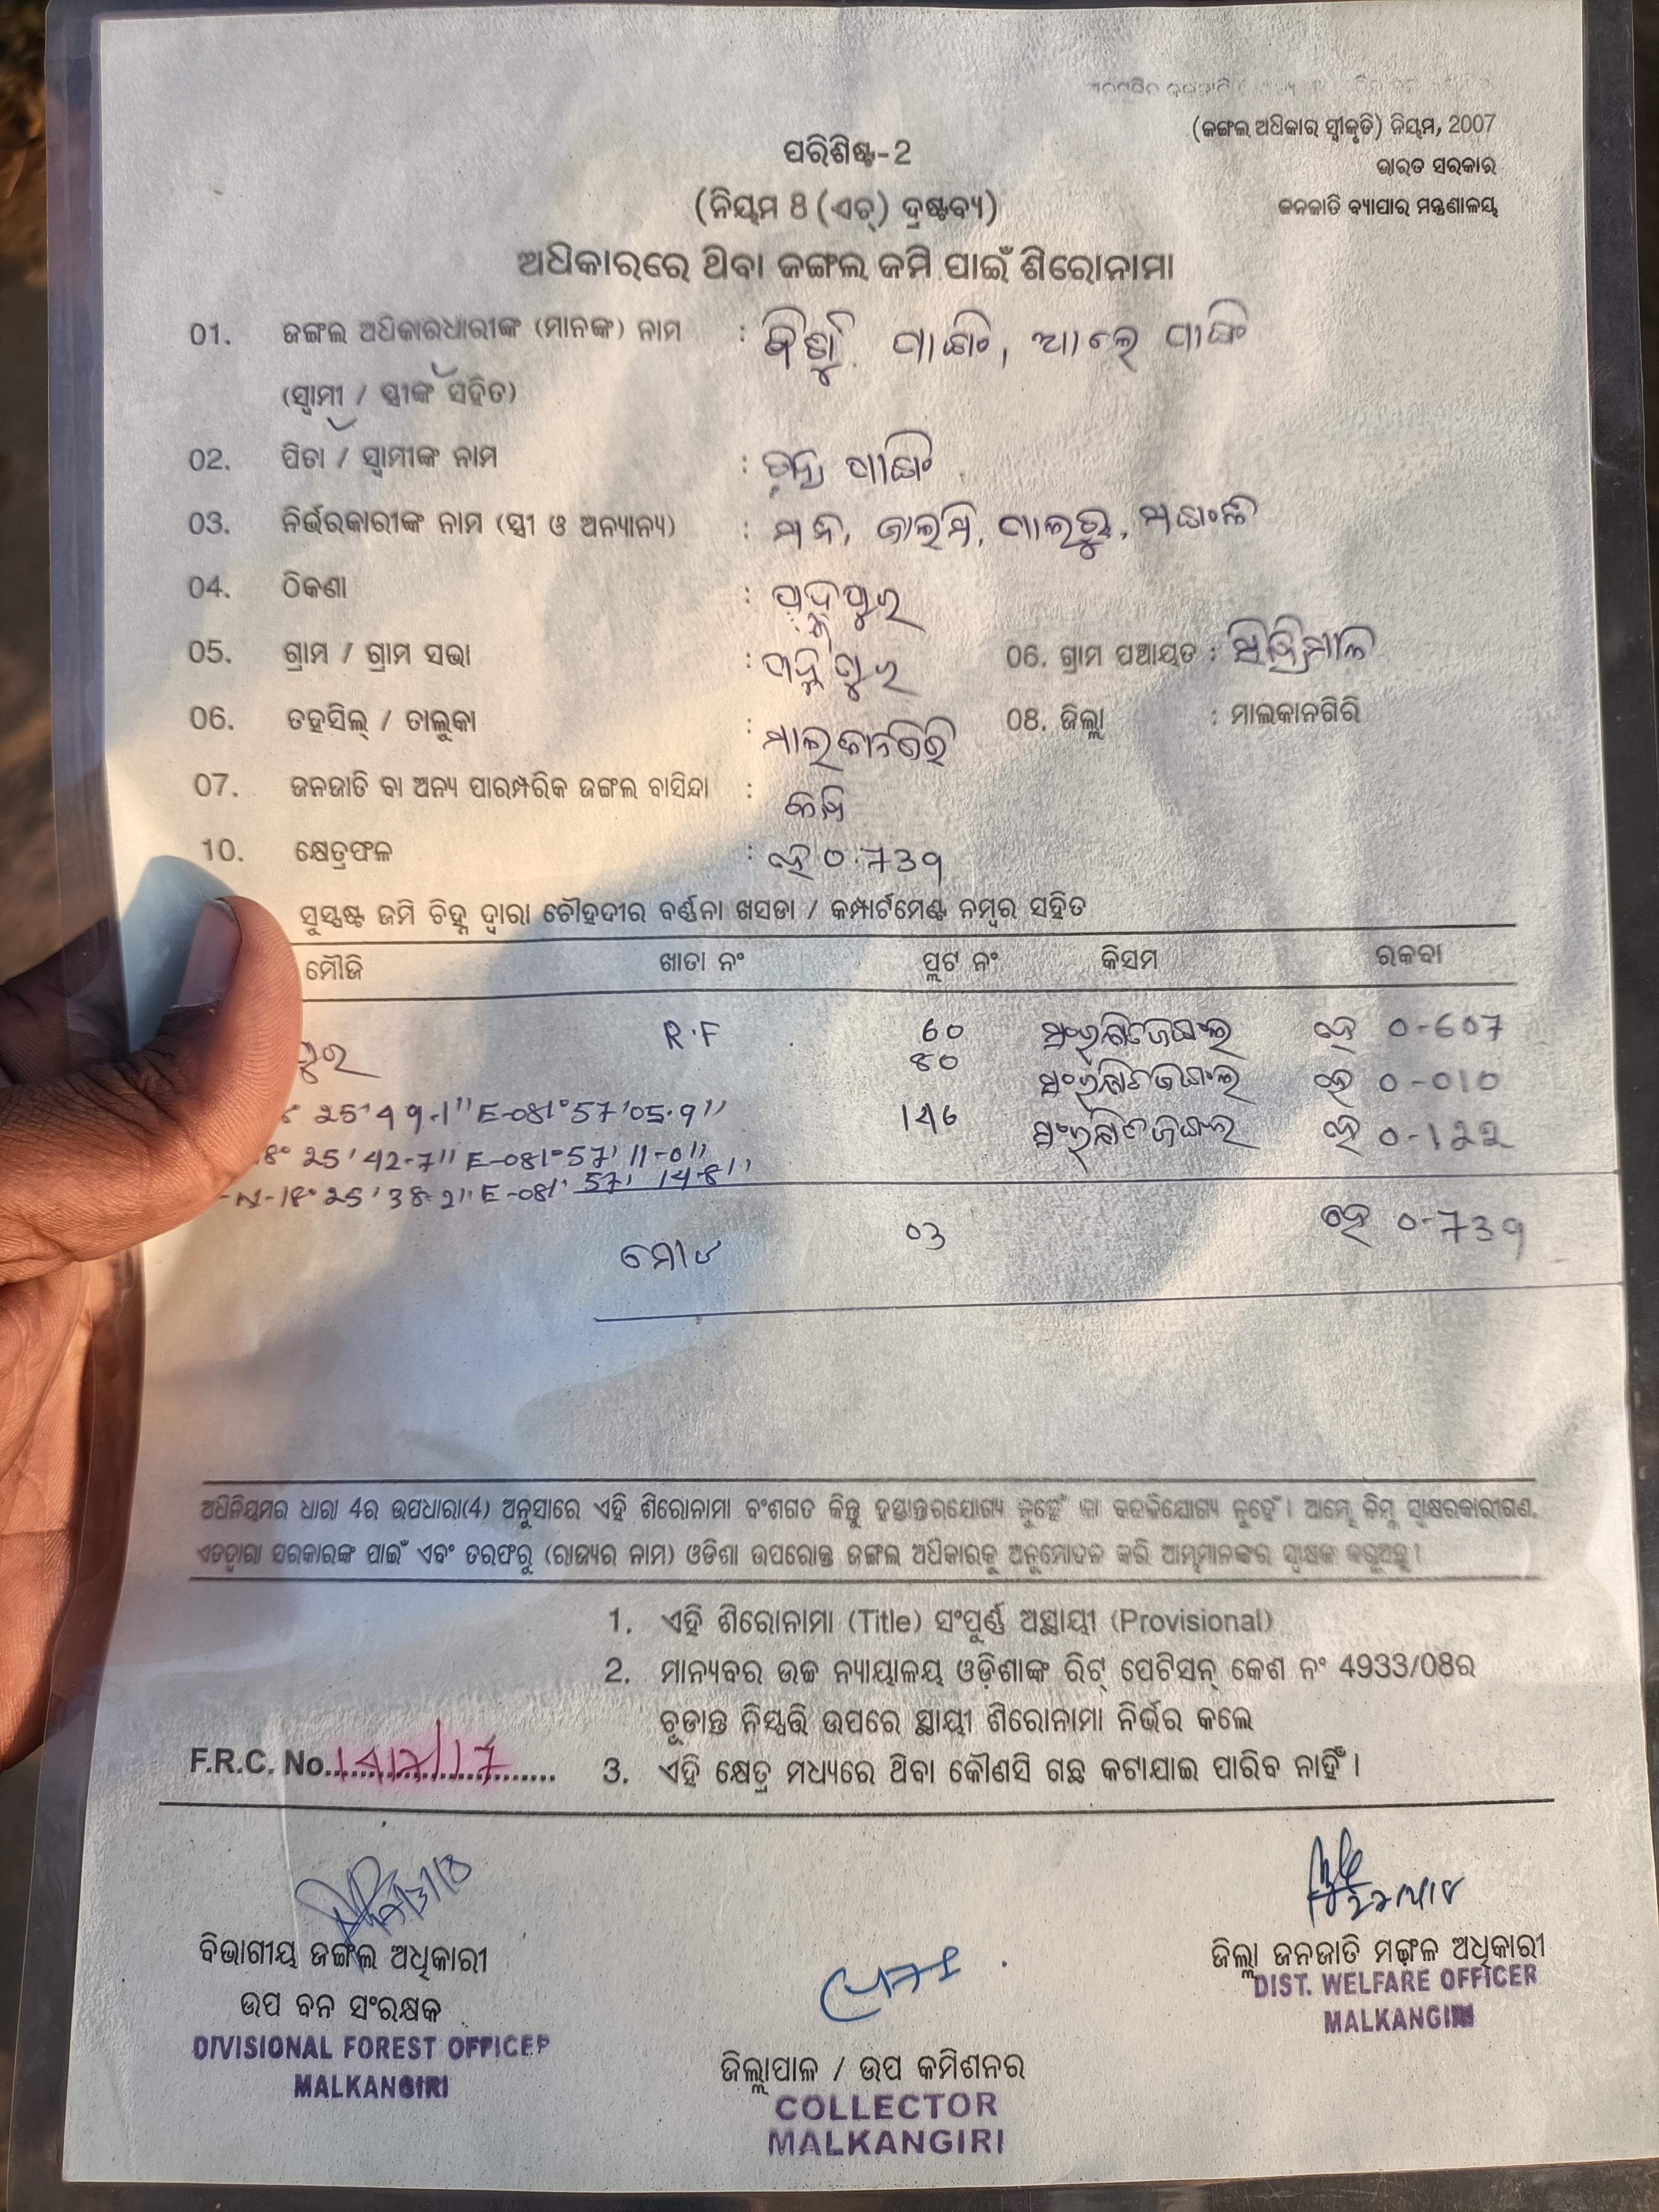 (ଜଙ୍ଗଲ ଅଧିକାର ସ୍ୱୀକୃତି) ନିୟମ, 2007
ଭାରତ ସରକାର
ଜନଜାତି ବ୍ୟାପାର ମନ୍ତ୍ରଣାଳୟ
ପରିଶିଷ୍ଟ-2
(ନିୟମ 8 (ଏଚ୍) ଦ୍ରଷ୍ଟବ୍ୟ)
ଅଧିକାରରେ ଥିବା ଜଙ୍ଗଲ ଜମି ପାଇଁ ଶିରୋନାମା
01. ଜଙ୍ଗଲ ଅଧିକାରଧାରୀଙ୍କ (ମାନଙ୍କ) ନାମ :
(ସ୍ୱାମୀ / ସ୍ତ୍ରୀଙ୍କ ସହିତ)
02. ପିତା / ସ୍ୱାମୀଙ୍କ ନାମ :
03. ନିର୍ଭରକାରୀଙ୍କ ନାମ (ସ୍ତ୍ରୀ ଓ ଅନ୍ୟାନ୍ୟ) :
04. ଠିକଣା :
05. ଗ୍ରାମ / ଗ୍ରାମ ସଭା : 06. ଗ୍ରାମ ପଞ୍ଚାୟତ :
06. ତହସିଲ୍ / ତାଲୁକା : ମାଲକାନଗିରି 08. ଜିଲ୍ଲା : ମାଲକାନଗିରି
07. ଜନଜାତି ବା ଅନ୍ୟ ପାରମ୍ପରିକ ଜଙ୍ଗଲ ବାସିନ୍ଦା :
10. କ୍ଷେତ୍ରଫଳ : ହେ ୦.739
ସୁସ୍ପଷ୍ଟ ଜମି ଚିହ୍ନ ଦ୍ୱାରା ଚୌହଦୀର ବର୍ଣ୍ଣନା ଖସଡା / କମ୍ପାର୍ଟମେଣ୍ଟ ନମ୍ବର ସହିତ
ମୌଜି ଖାତା ନଂ ପ୍ଲଟ ନଂ କିସମ ରକବା
R.F 60 ସଂରକ୍ଷିତ ଜଙ୍ଗଲ ହେ 0-607
80 ସଂରକ୍ଷିତ ଜଙ୍ଗଲ ହେ 0-010
25' 49.1" E-081° 57' 05.9" 146 ସଂରକ୍ଷିତ ଜଙ୍ଗଲ ହେ 0-122
18° 25' 42-7" E-081° 57' 11-0"
N-18° 25' 38.2" E-081° 57' 14-8"
ମୋଟ 03 ହେ 0-739
ଅଧିନିୟମର ଧାରା 4ର ଉପଧାରା(4) ଅନୁସାରେ ଏହି ଶିରୋନାମା ବଂଶଗତ କିନ୍ତୁ ହସ୍ତାନ୍ତରଯୋଗ୍ୟ ନୁହେଁ ବା ବଦଳିଯୋଗ୍ୟ ନୁହେଁ । ଆମ୍ଭେ ନିମ୍ନ ସ୍ୱାକ୍ଷରକାରୀଗଣ,
ଏତଦ୍ୱାରା ସରକାରଙ୍କ ପାଇଁ ଏବଂ ତରଫରୁ (ରାଜ୍ୟର ନାମ) ଓଡିଶା ଉପରୋକ୍ତ ଜଙ୍ଗଲ ଅଧିକାରକୁ ଅନୁମୋଦନ କରି ଆମ୍ଭମାନଙ୍କର ସ୍ୱାକ୍ଷର କରୁଅଛୁ ।
1. ଏହି ଶିରୋନାମା (Title) ସଂପୂର୍ଣ୍ଣ ଅସ୍ଥାୟୀ (Provisional)
2. ମାନ୍ୟବର ଉଚ୍ଚ ନ୍ୟାୟାଳୟ ଓଡ଼ିଶାଙ୍କ ରିଟ୍ ପେଟିସନ୍ କେଶ ନଂ 4933/08ର
ଚୂଡାନ୍ତ ନିସ୍ପତ୍ତି ଉପରେ ସ୍ଥାୟୀ ଶିରୋନାମା ନିର୍ଭର କଲେ
F.R.C. No. 3. ଏହି କ୍ଷେତ୍ର ମଧ୍ୟରେ ଥିବା କୌଣସି ଗଛ କଟାଯାଇ ପାରିବ ନାହିଁ ।
ବିଭାଗୀୟ ଜଙ୍ଗଲ ଅଧିକାରୀ
ଉପ ବନ ସଂରକ୍ଷକ
DIVISIONAL FOREST OFFICER
MALKANGIRI
ଜିଲ୍ଲାପାଳ / ଉପ କମିଶନର
COLLECTOR
MALKANGIRI
ଜିଲ୍ଲା ଜନଜାତି ମଙ୍ଗଳ ଅଧିକାରୀ
DIST. WELFARE OFFICER
MALKANGIRI